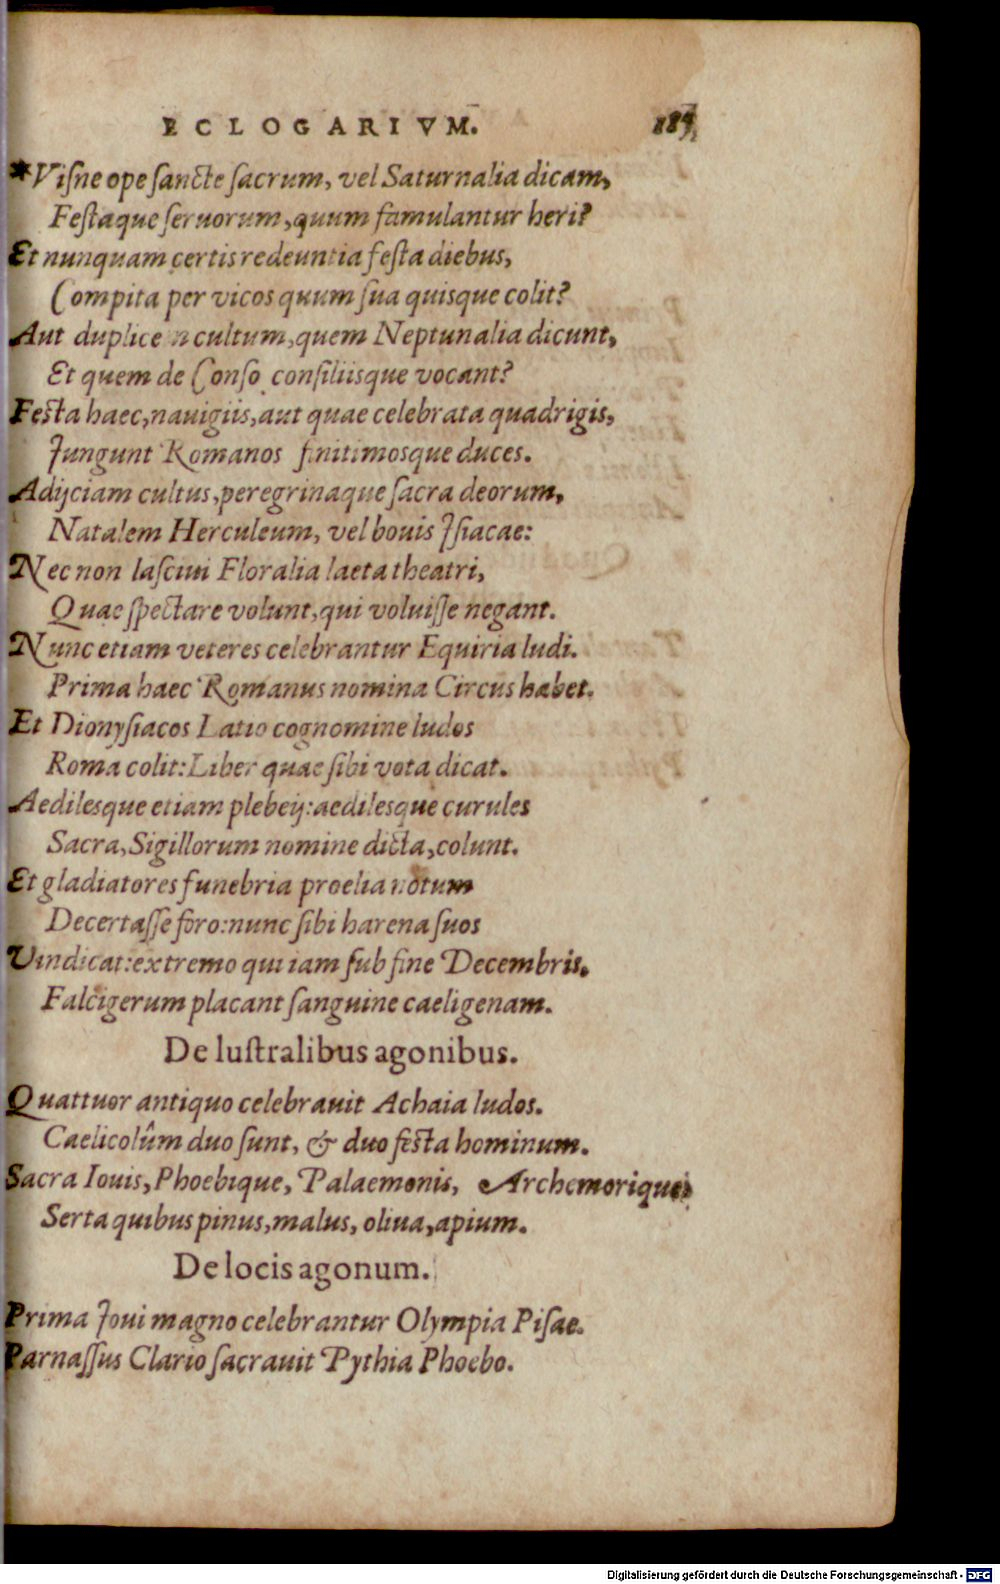 ECLOGARIVM.
*Viſne ope ſancte ſacrum, vel Saturnalia dicam,
Feſtaque ſeruorum, quum famulantur heri?
Et nunquam certis redeuntia feſta diebus,
Compita per vicos quum ſua quisque colit?
Aut duplicem cultum, quem Neptunalia dicunt,
Et quem de Conſo conſiliisque vocant?
Feſta haec, nauigiis, aut quae celebrata quadrigis,
Jungunt Romanos finitimosque duces.
Adijciam cultus, peregrinaque ſacra deorum,
Natalem Herculeum, vel bouis Jſiacae:
Nec non laſciui Floralia laeta theatri,
Quae ſpectare volunt, qui voluiſſe negant.
Nunc etiam veteres celebrantur Equiria ludi.
Prima haec Romanus nomina Circus habet.
Et Dionyſiacos Latio cognomine ludos
Roma colit: Liber quae ſibi vota dicat.
Aedilesque etiam plebeij: aedilesque curules
Sacra, Sigillorum nomine dicta, colunt.
Et gladiatores funebria proelia notum
Decertaſſe foro: nunc ſibi harena ſuos
Vindicat: extremo qui iam ſub fine Decembris.
Falcigerum placant ſanguine caeligenam.
De luſtralibus agonibus.
Quattuor antiquo celebrauit Achaia ludos.
Caelicolûm duo ſunt, & duo feſta hominum.
Sacra Iouis, Phoebique, Palaemonis, Archemorique:
Serta quibus pinus, malus, oliua, apium.
De locis agonum.
Prima Joui magno celebrantur Olympia Piſae.
Parnaſſus Clario ſacrauit Pythia Phoebo.
Digitalisierung gefördert durch die Deutsche Forschungsgemeinschaft - DFG